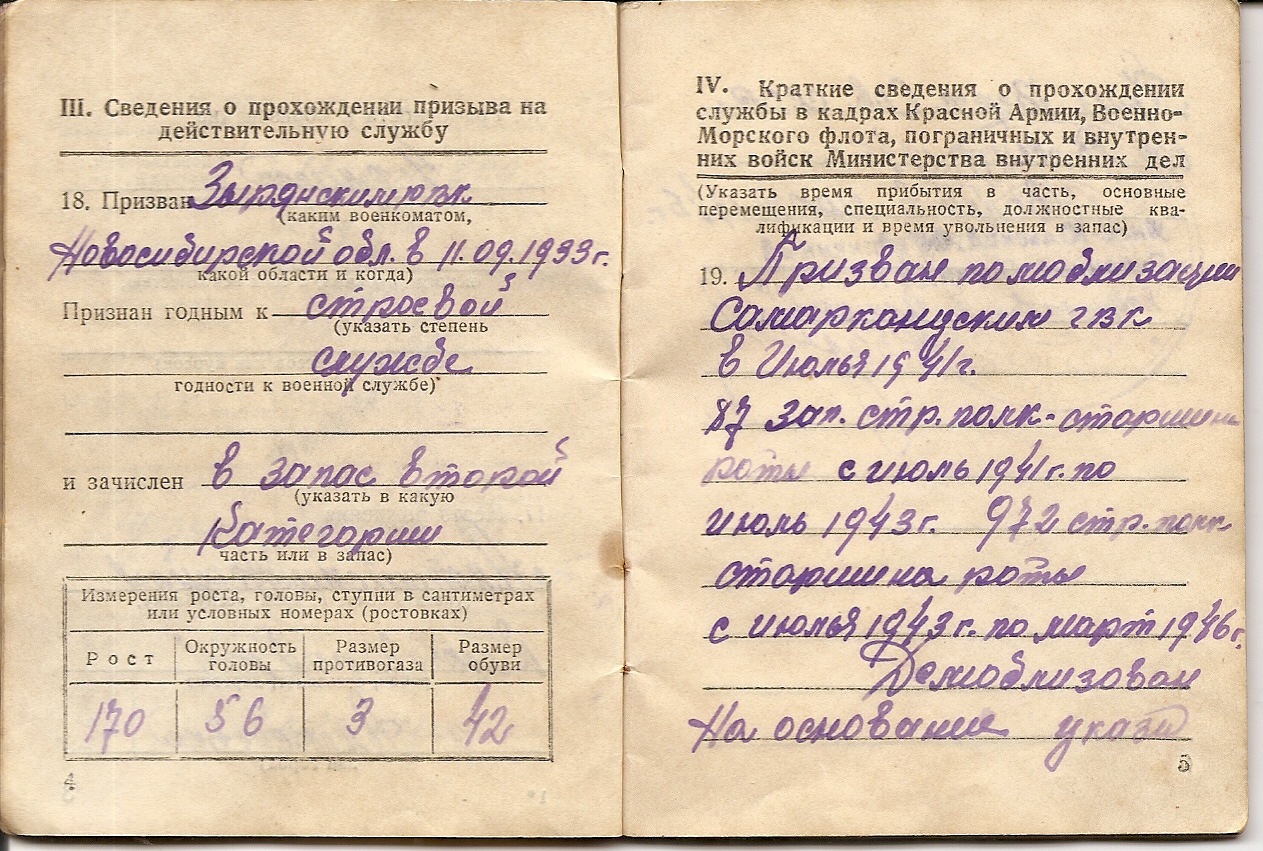 III. Сведения о прохождении призыва на
действительную службу
18. Призван Зырянским рвк
(каким военкоматом,
Новосибирской обл. в 11.09.1933г.
какой области и когда)
Признан годным к строевой
(указать степень
службе
годности к военной службе)
и зачислен в запас второй
(указать в какую
категории
часть или в запас)
Измерения роста, головы, ступни в сантиметрах
или условных номерах (ростовках)
Рост Окружность головы Размер противогаза Размер обуви
170 56 3 42
4
IV. Краткие сведения о прохождении
службы в кадрах Красной Армии, Военно-
Морского флота, пограничных и внутрен-
них войск Министерства внутренних дел
(Указать время прибытия в часть, основные
перемещения, специальность, должностные ква-
лификации и время увольнения в запас)
19. Призван по моблизации
Самаркандским гвк
в Июлья 1941г.
87 зап. стр. полк - старшина
роты с июль 1941г. по
июль 1943г. 972 стр. полк
старшина роты
с июлья 1943г. по март 1946г.
Демоблизован
На основание указа
5